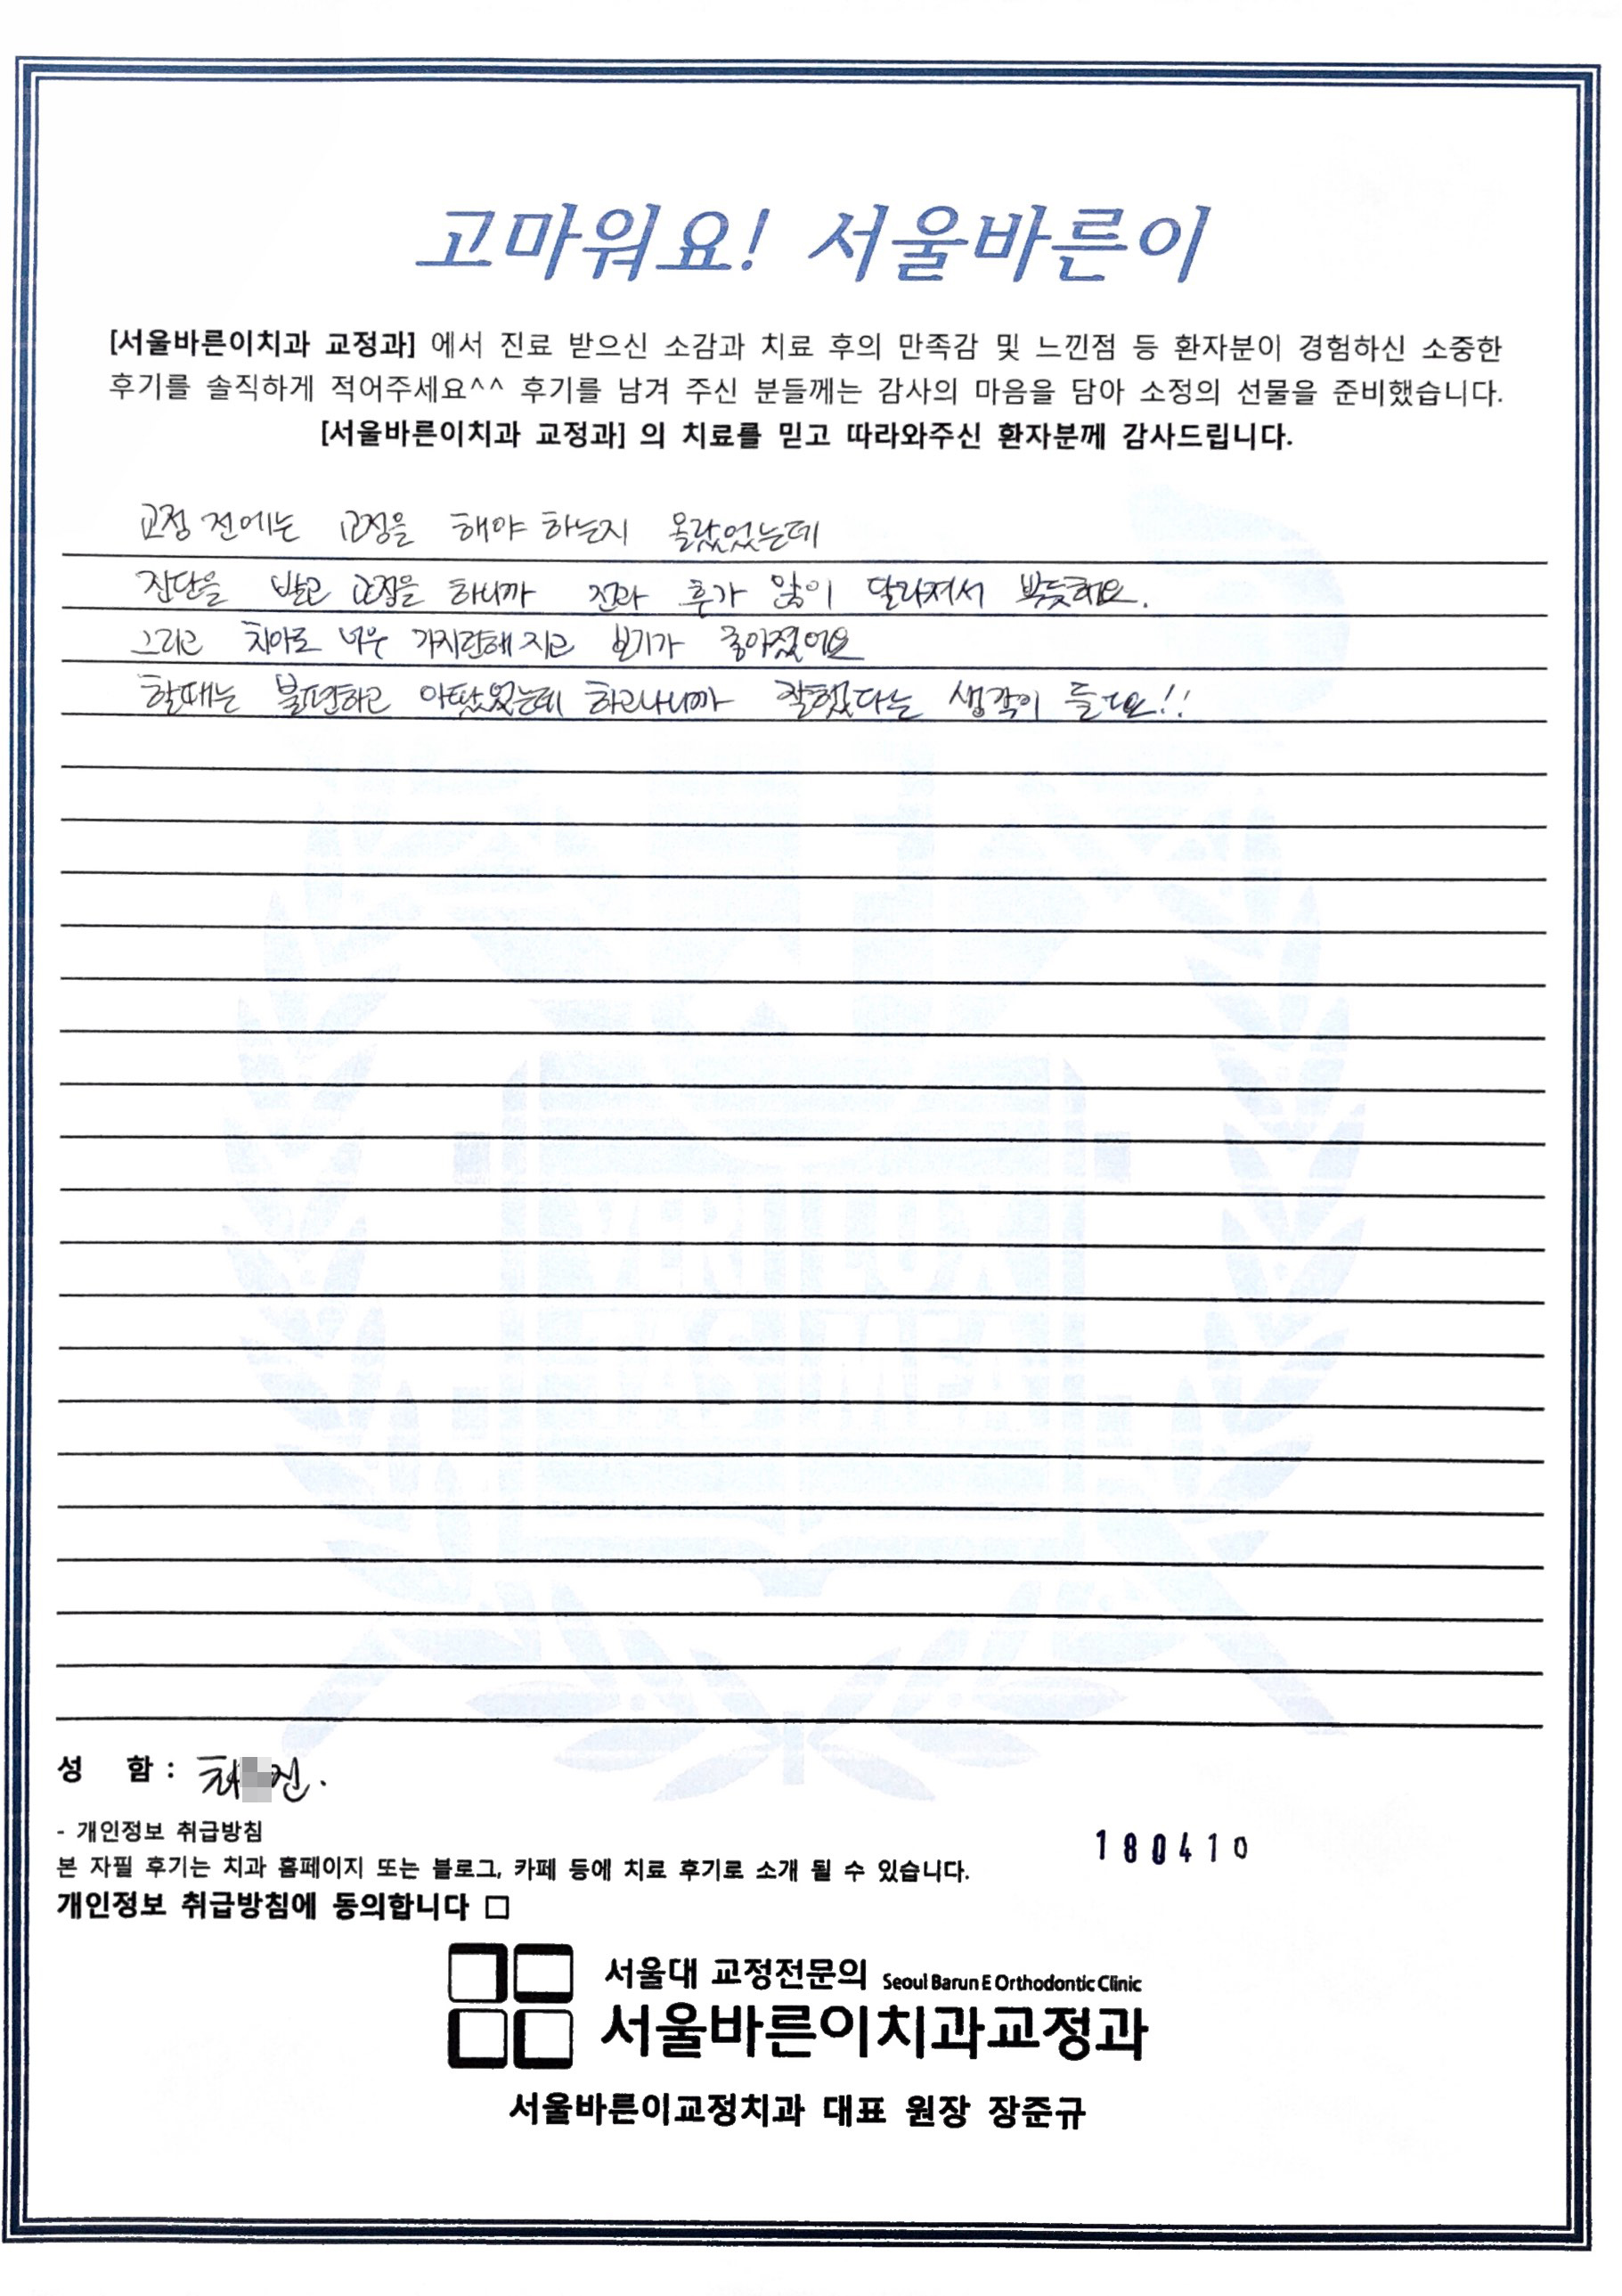 고마워요! 서울바른이
[서울바른이치과 교정과] 에서 진료 받으신 소감과 치료 후의 만족감 및 느낀점 등 환자분이 경험하신 소중한
후기를 솔직하게 적어주세요^^ 후기를 남겨 주신 분들께는 감사의 마음을 담아 소정의 선물을 준비했습니다.
[서울바른이치과 교정과] 의 치료를 믿고 따라와주신 환자분께 감사드립니다.
교정 전에는 교정을 해야 하는지 몰랐었는데
진단을 받고 교정을 하니까 전과 후가 많이 달라져서 뿌듯해요.
그리고 치아도 너무 가지런해지고 보기가 좋아졌어요
할때는 불편하고 아팠었는데 하고나니까 잘했다는 생각이 들어요!!
성 함 :
- 개인정보 취급방침
180410
본 자필 후기는 치과 홈페이지 또는 블로그, 카페 등에 치료 후기로 소개 될 수 있습니다.
개인정보 취급방침에 동의합니다 □
서울대 교정전문의 Seoul Barun E Orthodontic Clinic
서울바른이치과교정과
서울바른이교정치과 대표 원장 장준규